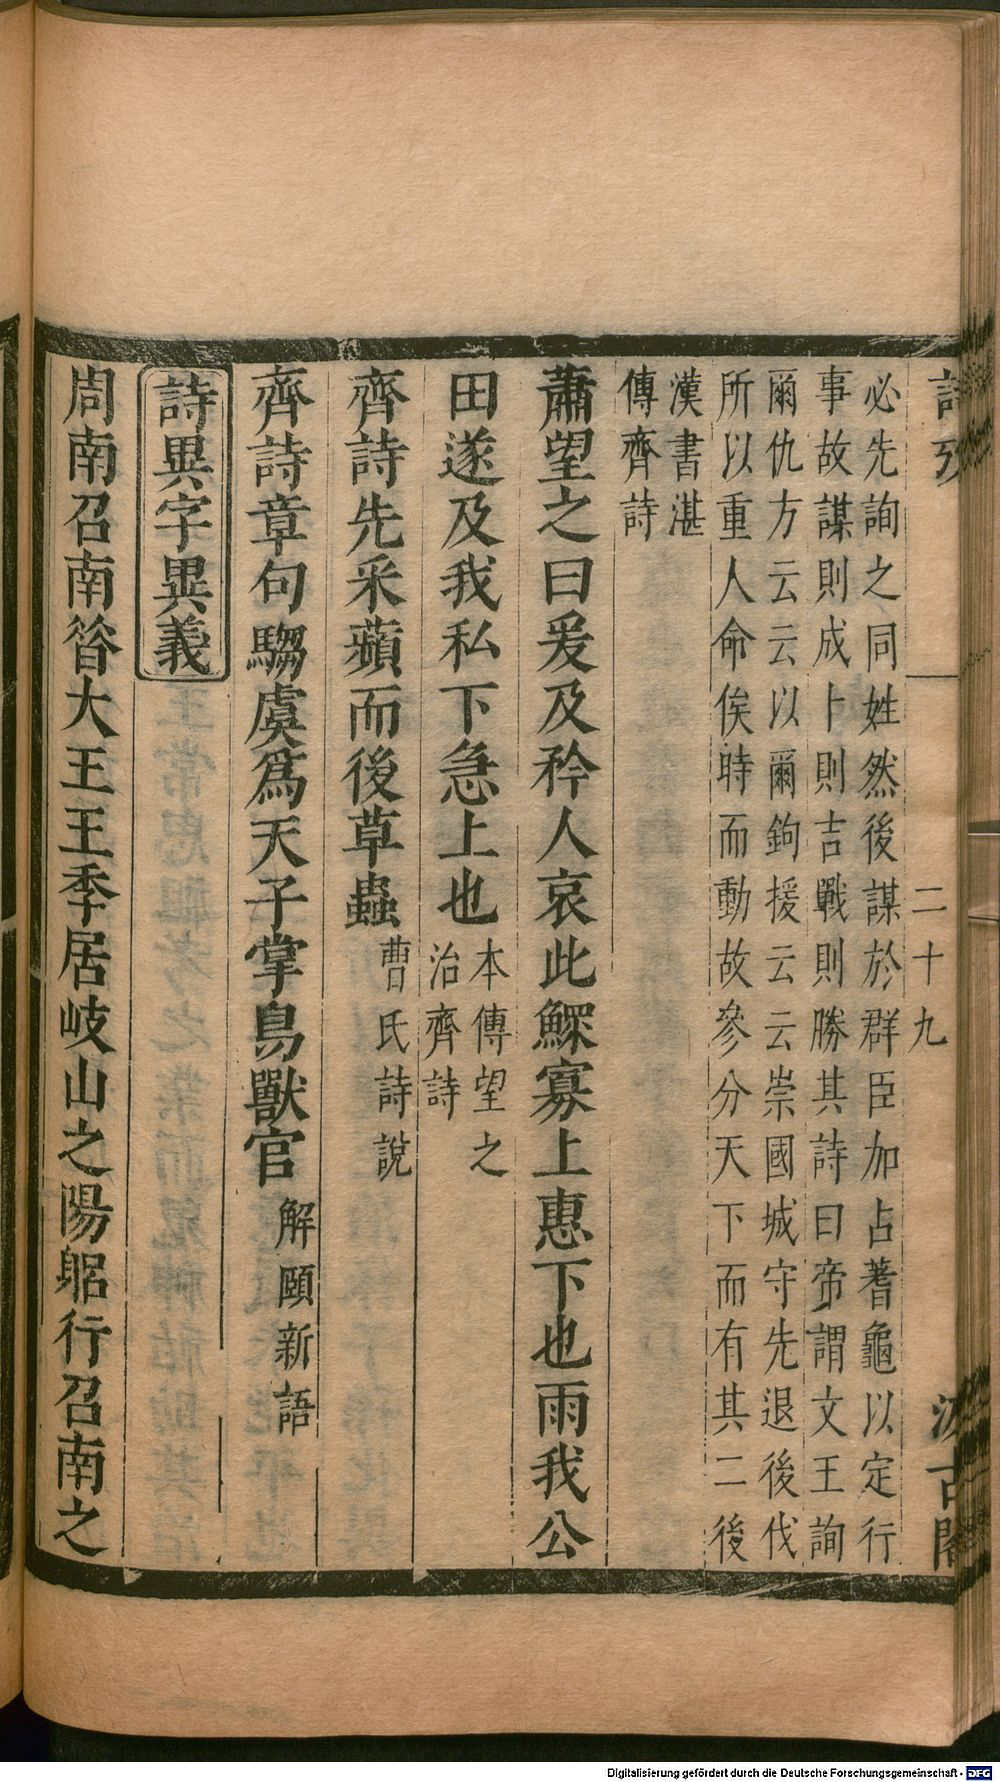 詩攷
二十九
汲古閣
必先詢之同姓然後謀於群臣加占蓍龜以定行
事故謀則成卜則吉戰則勝其詩曰帝謂文王詢
爾仇方云云以爾鉤援云云崇國城守先退後伐
所以重人命俟時而動故參分天下而有其二後
漢書湛
傳齊詩
蕭望之曰爰及矜人哀此鰥寡上惠下也雨我公
田遂及我私下急上也
本傳望之
治齊詩
齊詩先采蘋而後草蟲
曹氏詩說
齊詩章句騶虞爲天子掌鳥獸官
解頤新語
詩異字異義
周南召南昝大王王季居岐山之陽躳行召南之
Digitalisierung gefördert durch die Deutsche Forschungsgemeinschaft - DFG